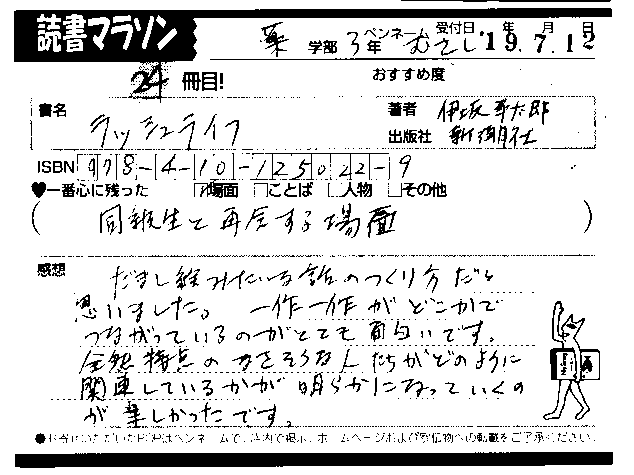 読書マラソン
薬 学部 3年 ペンネーム むさし 受付日 '19年 7月 12日
24 冊目! おすすめ度
書名 ラッシュライフ
著者 伊坂幸太郎
出版社 新潮社
ISBN 978-4-10-125022-9
♥一番心に残った ☑場面 □ことば □人物 □その他
( 同級生と再会する場面 )
感想 だまし絵みたいな話のつくり方だと
思いました。 一作一作がどこかで
つながっているのがとても面白いです。
全然接点のなさそうな人たちがどのように
関連しているかが明らかになっていくの
が楽しかったです。
●お寄せいただいたPOPはペンネームで、店内で掲示、ホームページおよび
への転載をご了承ください。